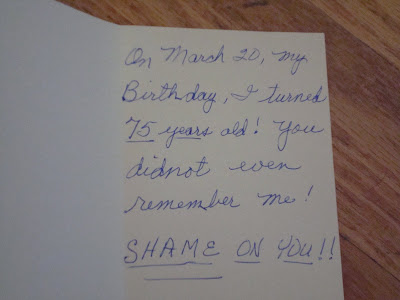 On March 20, my
Birthday, I turned
75 years old! You
didnot even
remember me!
SHAME ON YOU!!